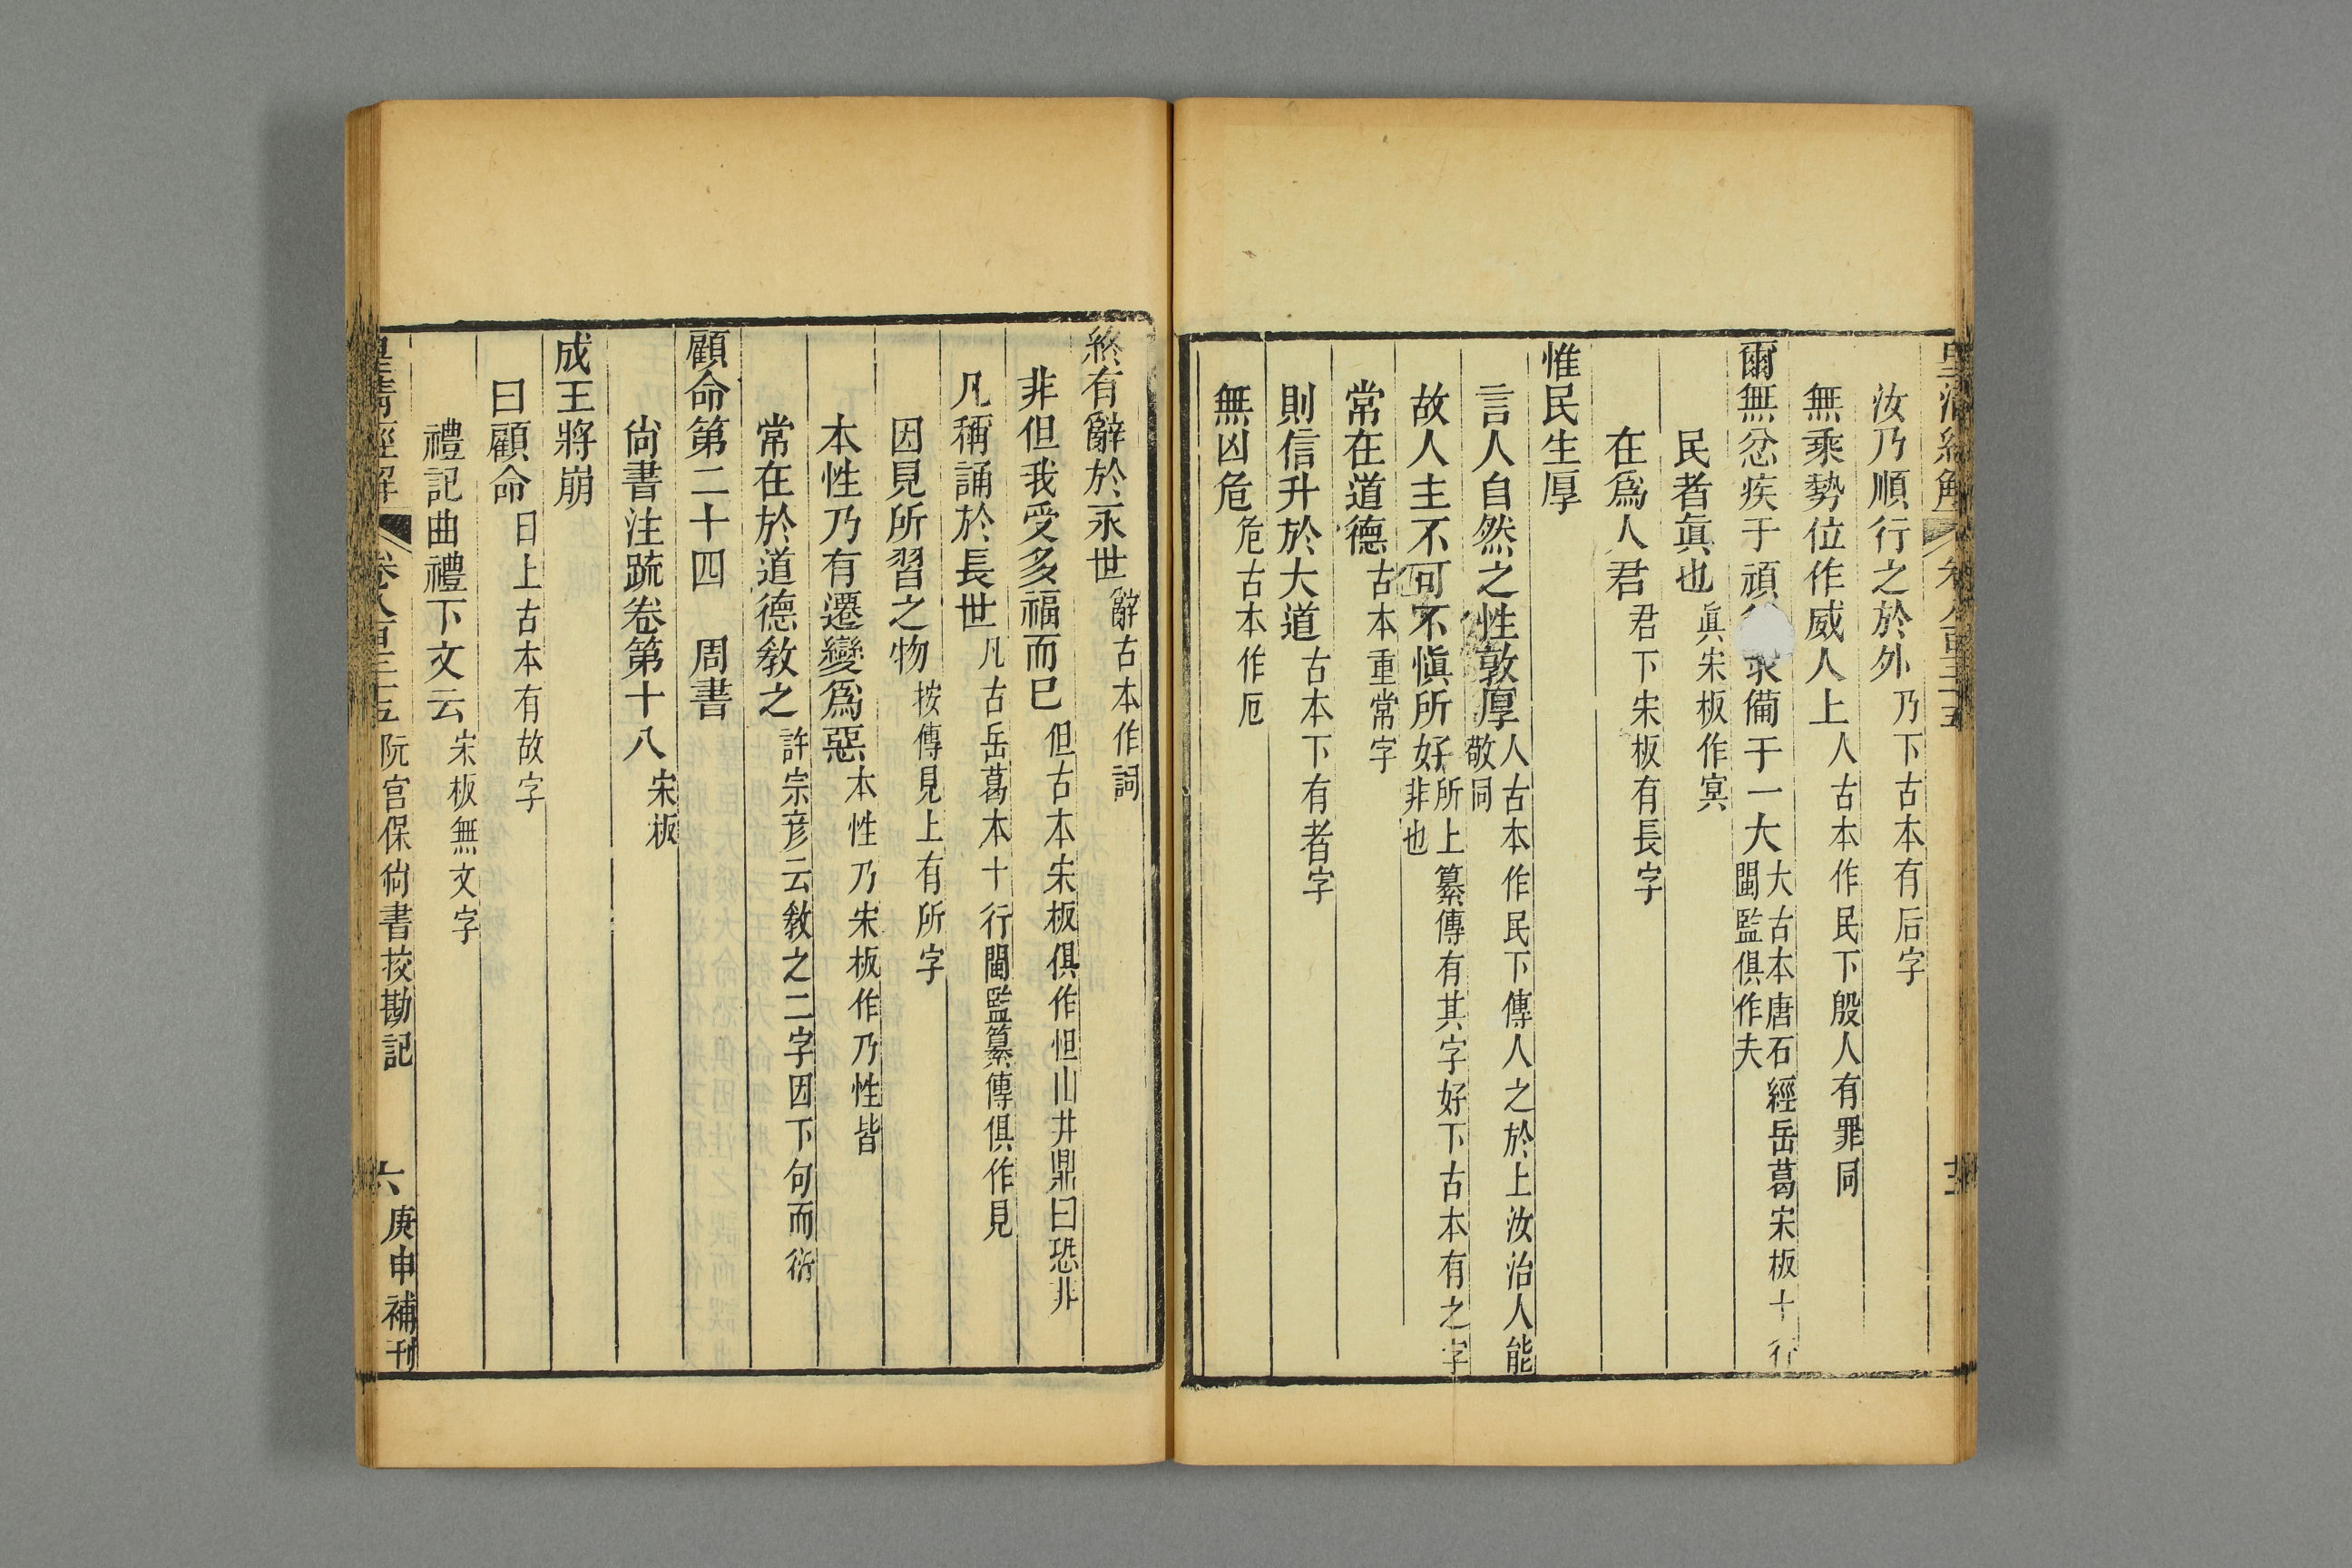 汝乃順行之於外乃下古本有后字
無乘勢位作威人上人古本作民下殷人有罪同
爾無忿疾于頑 求備于一大大古本唐石經岳葛宋板十行閩監俱作夫
民者眞也眞宋板作冥
在爲人君君下宋板有長字
惟民生厚
言人自然之性敦厚人古本作民下傳人之於上汝治人能敬同
故人主不可不愼所好所上纂傳有其字好下古本有之字非也
常在道德古本重常字
則信升於大道古本下有者字
無凶危危古本作厄
終有辭於永世辭古本作詞
非但我受多福而巳但古本宋板俱作怛山井鼎曰恐非
凡稱誦於長世凡古岳葛本十行閩監纂傳俱作見
因見所習之物按傳見上有所字
本性乃有遷變爲惡本性乃宋板作乃性皆
常在於道德敎之許宗彦云敎之二字因下句而衍
顧命第二十四 周書
尙書注疏卷第十八宋板
成王將崩
曰顧命日上古本有故字
禮記曲禮下文云宋板無文字
皇淸經解 卷八百三十五 阮宮保尙書挍勘記 六 庚申補刊